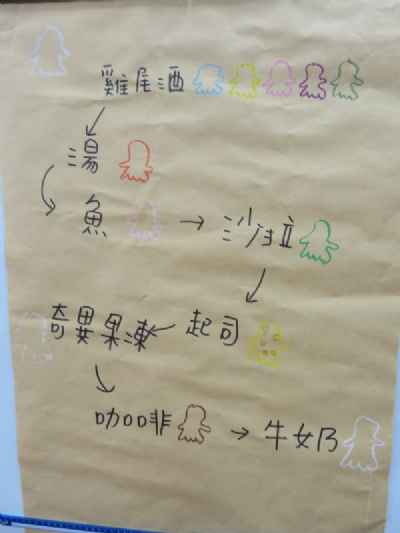 雞尾酒
湯
魚 → 沙拉
奇異果凍 起司
咖啡 → 牛奶